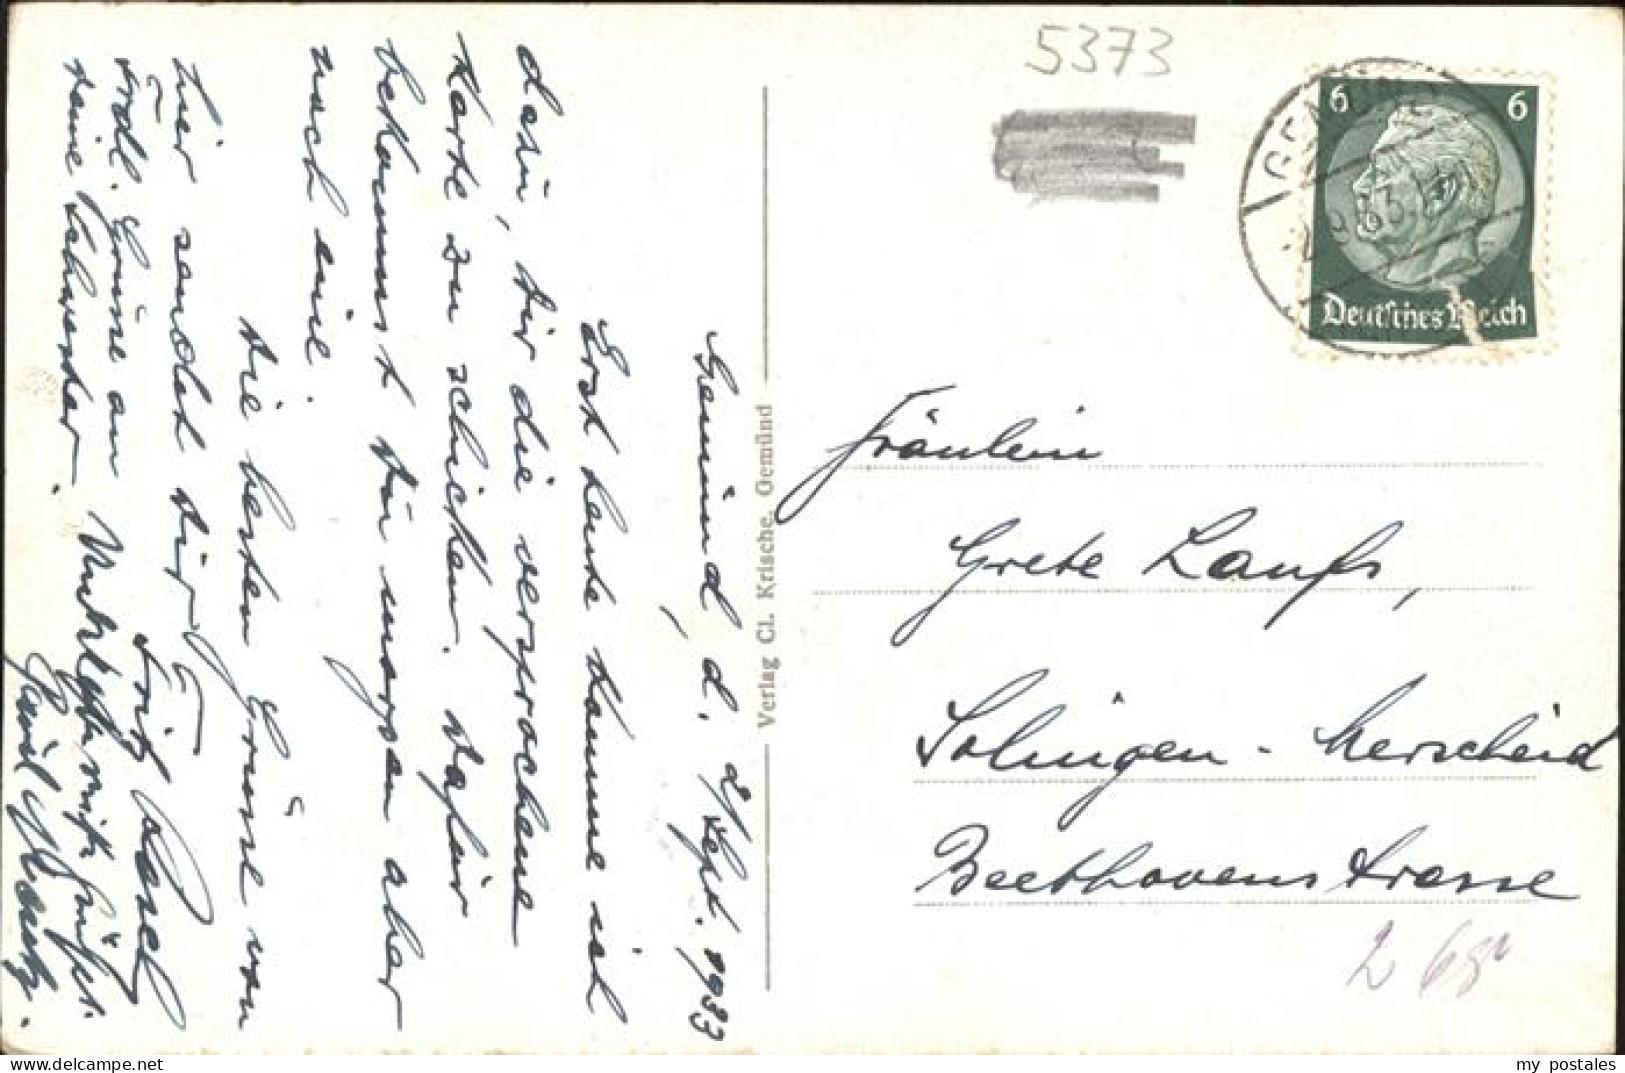 5373
6 6
Deutsches Reich
Gemünd, d. 2. Sept. 1933
Erst heute komme ich
dazu, Dir die versprochene
Karte zu schicken. Dafür
bekommst Du morgen aber
noch eine.
Die besten Grüsse von
hier sendet Dir
Fritz
frdl. Grüsse an
Deine Schwester.
Verlag Cl. Krische, Gemünd
Fräulein
Grete Laufs,
Solingen-Merscheid
Beethovenstrasse
my postales